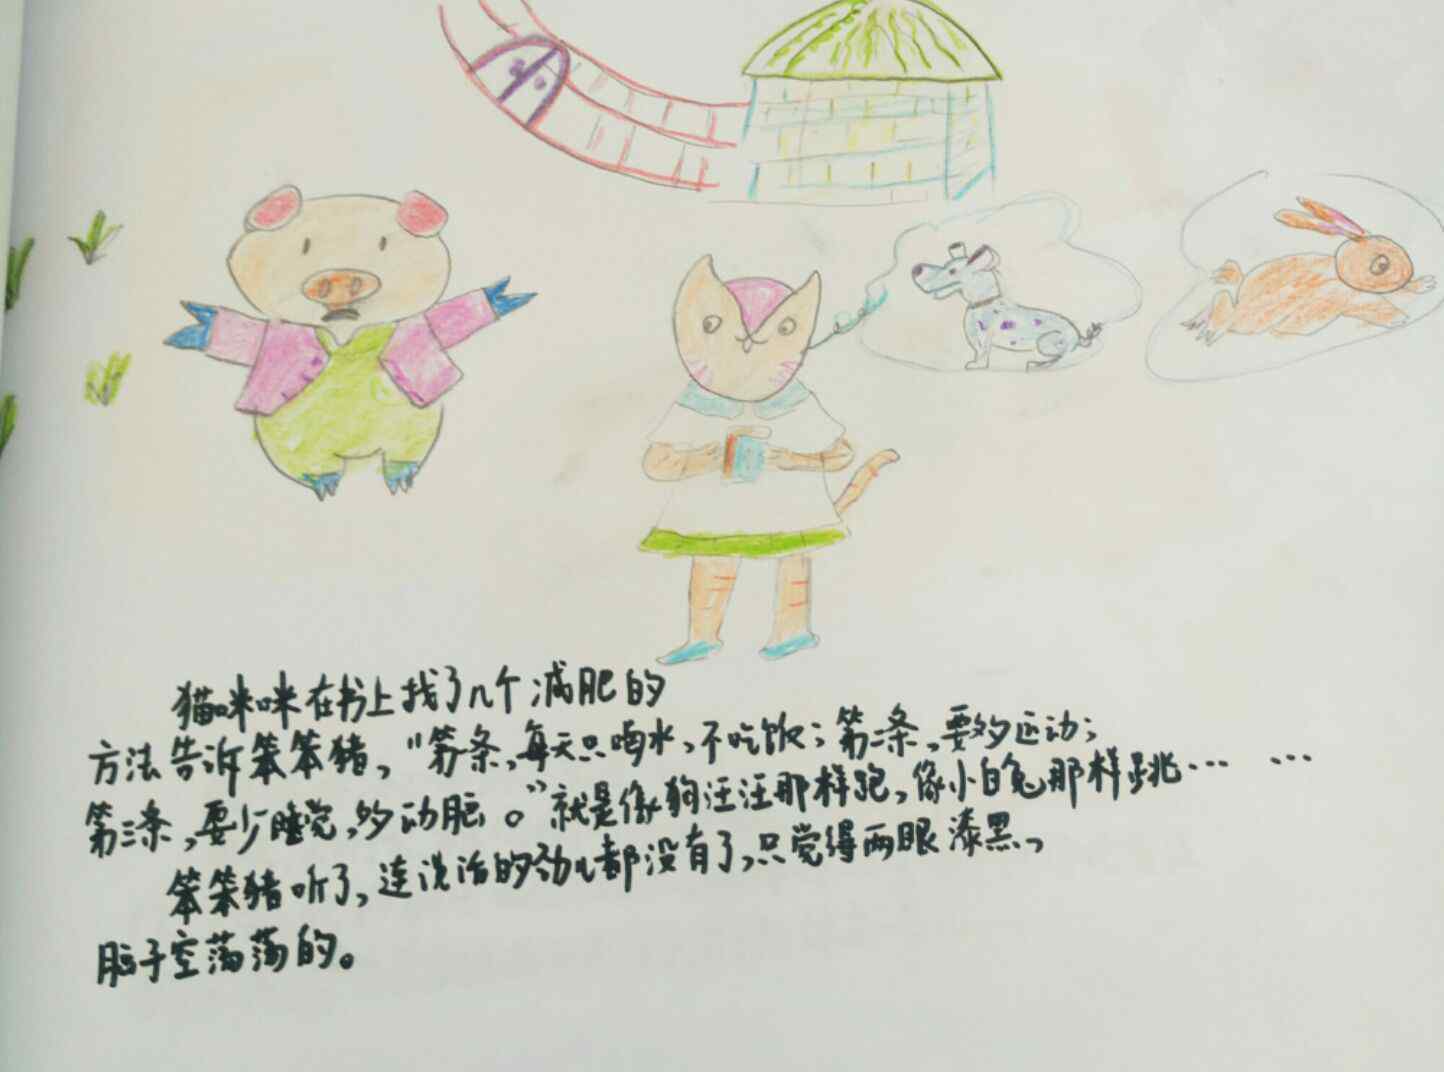 猫咪咪在书上找了几个减肥的
方法告诉笨笨猪，“第一条，每天只喝水，不吃饭；第二条，要多运动；
第三条，要少睡觉，多动脑。”就是像狗汪汪那样跑，像小白兔那样跳……  …
笨笨猪听了，连说话的劲儿都没有了，只觉得两眼漆黑，
脑子空荡荡的。